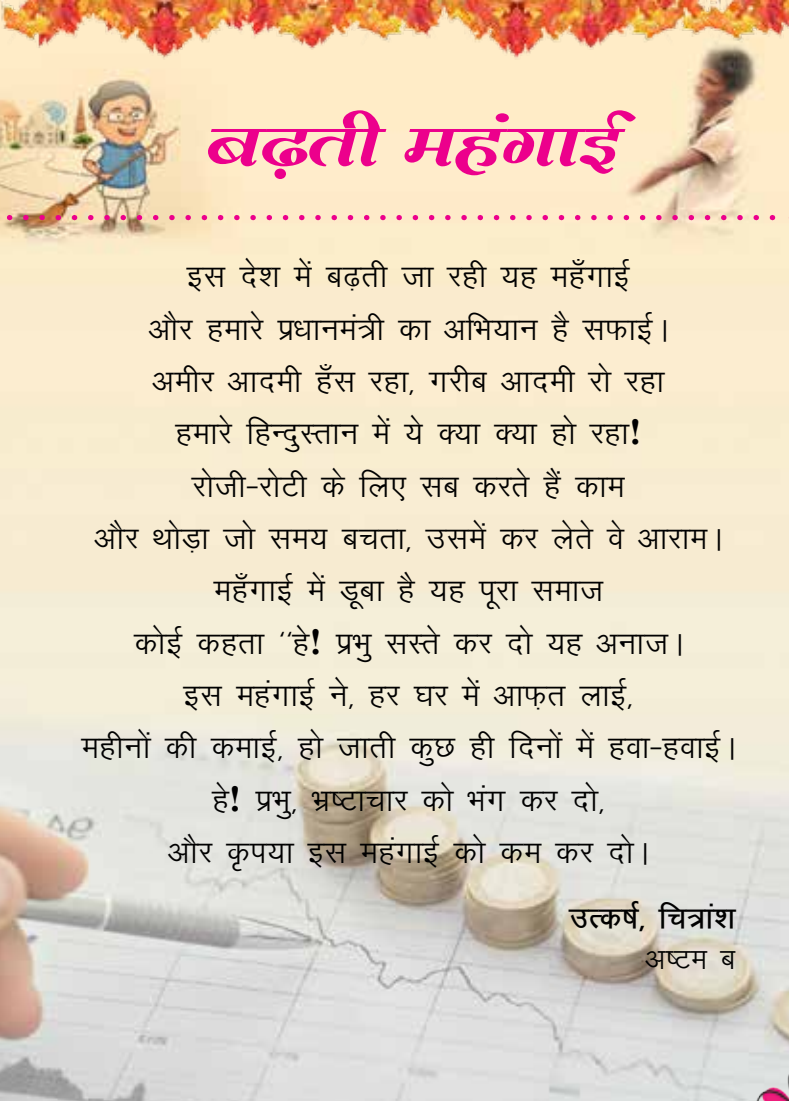 बढ़ती महंगाई
इस देश में बढ़ती जा रही यह महँगाई
और हमारे प्रधानमंत्री का अभियान है सफाई।
अमीर आदमी हँस रहा, गरीब आदमी रो रहा
हमारे हिन्दुस्तान में ये क्या क्या हो रहा!
रोजी-रोटी के लिए सब करते हैं काम
और थोड़ा जो समय बचता, उसमें कर लेते वे आराम।
महँगाई में डूबा है यह पूरा समाज
कोई कहता ‘‘हे! प्रभु सस्ते कर दो यह अनाज।
इस महंगाई ने, हर घर में आफ़त लाई,
महीनों की कमाई, हो जाती कुछ ही दिनों में हवा-हवाई।
हे! प्रभु, भ्रष्टाचार को भंग कर दो,
और कृपया इस महंगाई को कम कर दो।
उत्कर्ष, चित्रांश
अष्टम ब